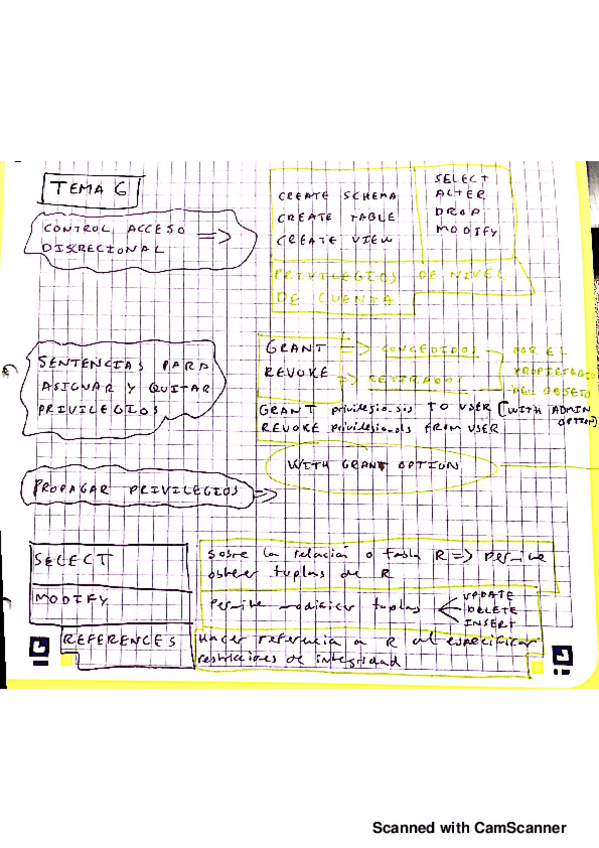 TEMA 6
CONTROL ACCESO
DISCRECIONAL =>
CREATE SCHEMA
CREATE TABLE
CREATE VIEW
SELECT
ALTER
DROP
MODIFY
PRIVILEGIOS DE NIVEL
DE CUENTA
SENTENCIAS PARA
ASIGNAR Y QUITAR
PRIVILEGIOS
GRANT => CONCEDIDOS
REVOKE => RETIRADOS
POR EL
PROPIETARIO
DEL OBJETO
GRANT privilegios TO USER [WITH ADMIN
OPTION]
REVOKE privilegios FROM USER
PROPAGAR PRIVILEGIOS =>
WITH GRANT OPTION
SELECT
sobre la relación o tabla R => permite
obtener tuplas de R
MODIFY
Permite modificar tuplas
UPDATE
DELETE
INSERT
REFERENCES
Hacer referencia a R al especificar
restricciones de integridad
Scanned with CamScanner